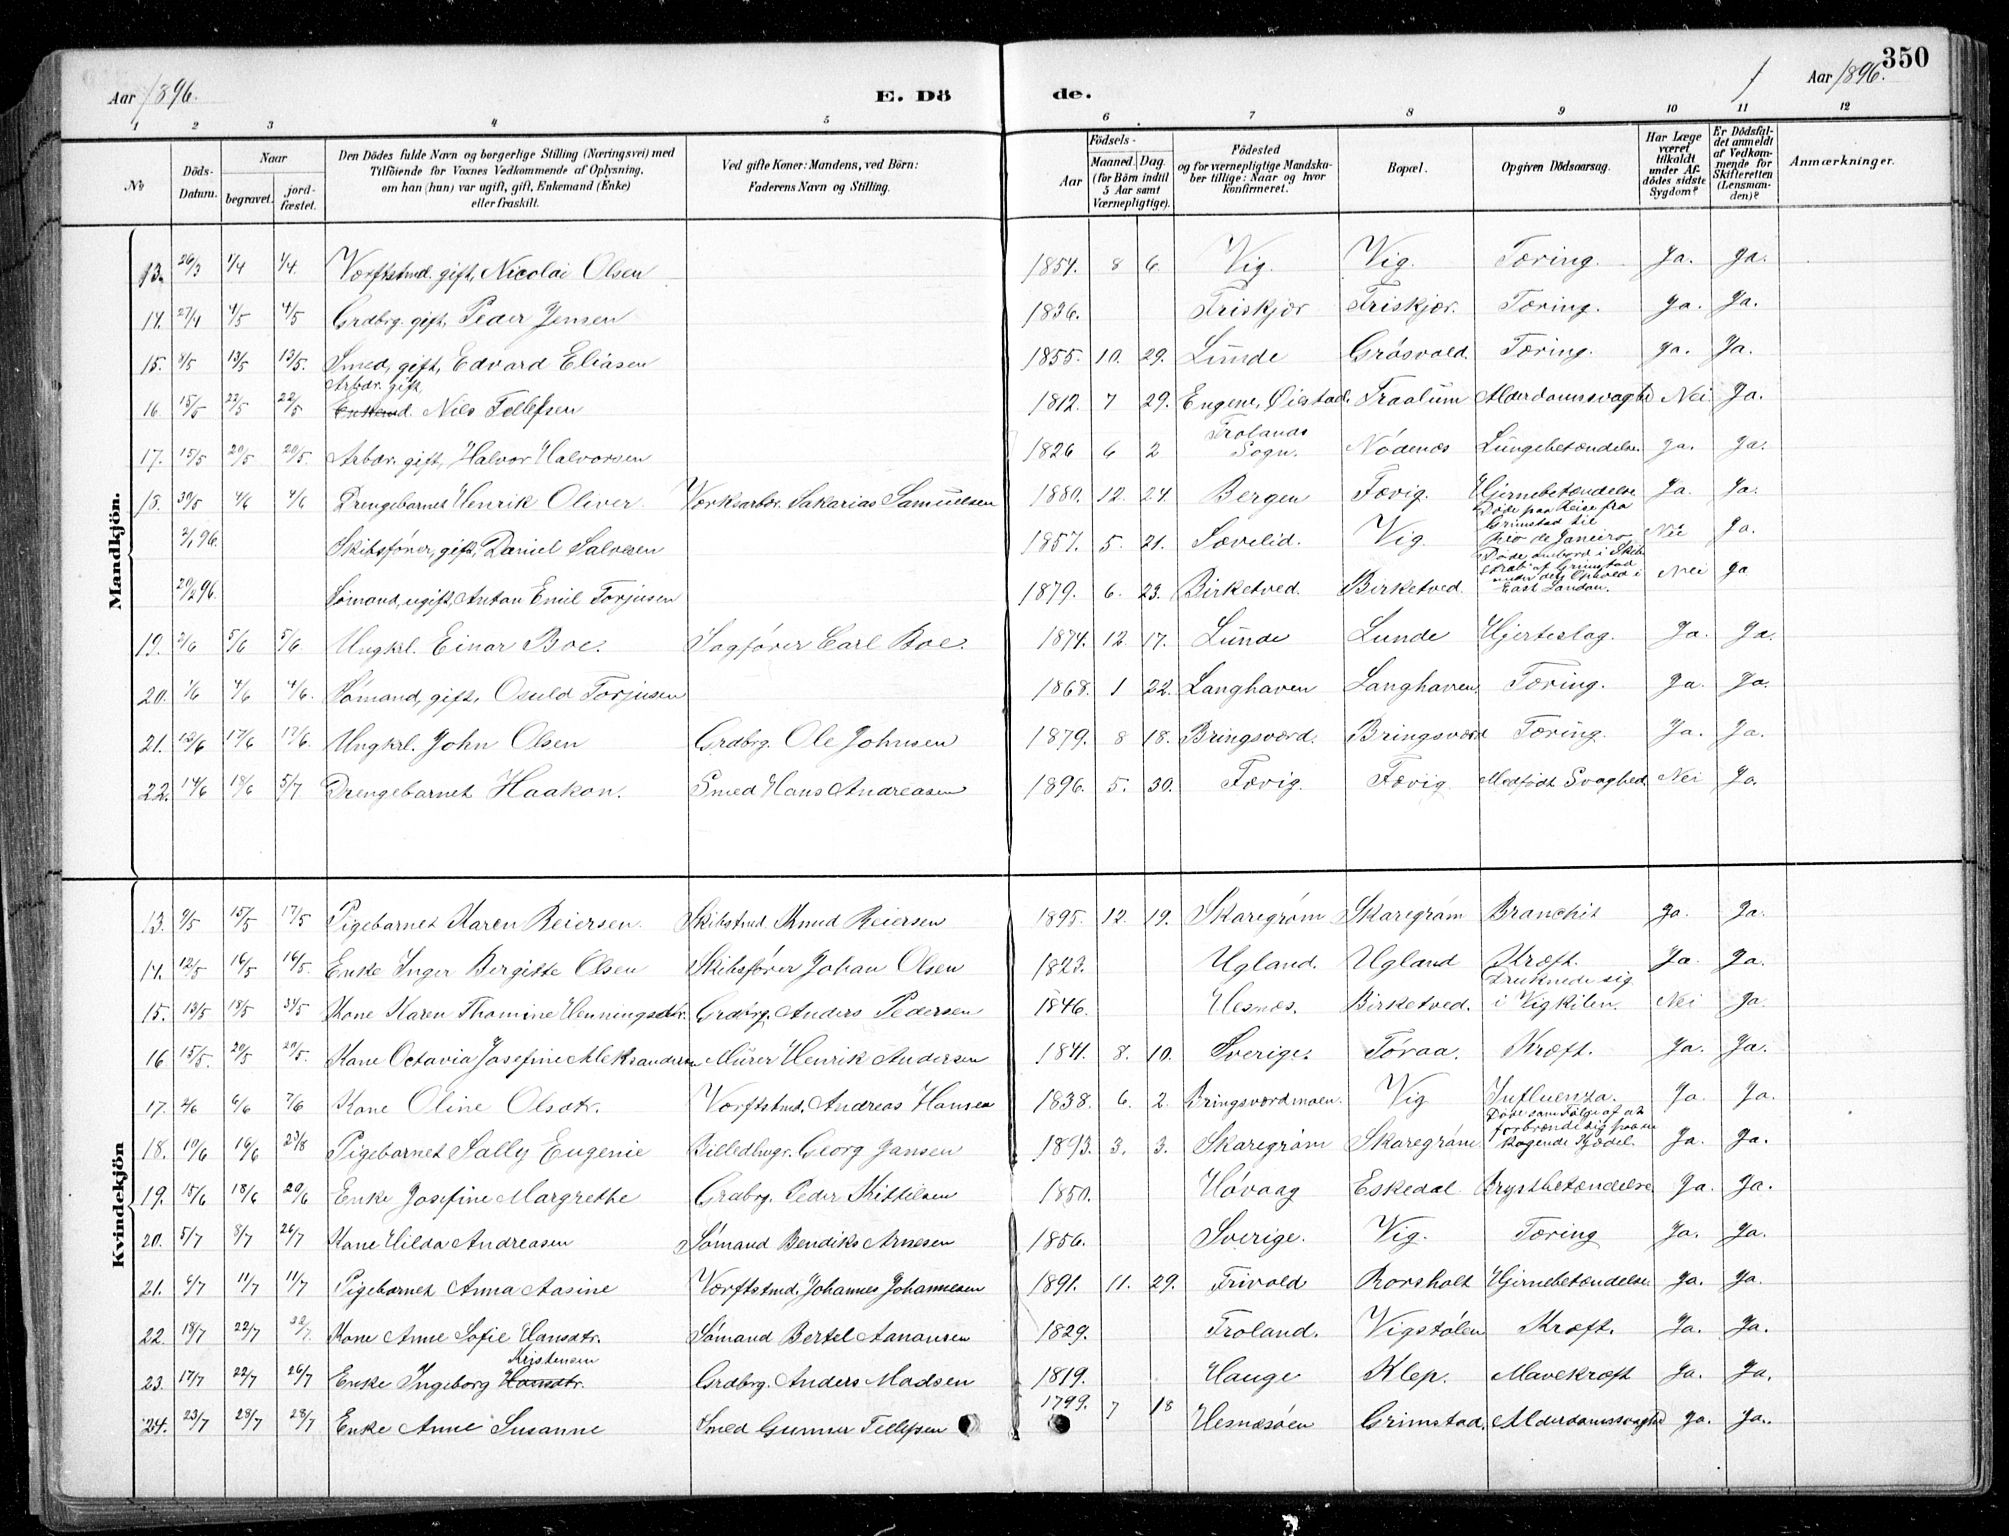 350
Aar 1896. E. Dö de. Aar 1896.
1 2 3 4 5 6 7 8 9 10 11 12
No Döds-Datum. Naar begravet. jord-fæstet. Den Dödes fulde Navn og borgerlige Stilling (Næringsvei) med Tilföiende for Voxnes Vedkommende af Oplysning, om han (hun) var ugift, gift, Enkemand (Enke) eller fraskilt. Ved gifte Koner: Mandens, ved Börn: Faderens Navn og Stilling. Födsels- Aar Maaned. Dag. (for Börn indtil 5 Aar samt Værnepligtige). Födested og for værnepligtige Mandskaber tillige: Naar og hvor konfirmeret. Bopæl. Opgiven Dödsaarsag. Har Læge været tilkaldt under Afdödes sidste Sygdom? Er Dödsfaldet anmeldt af Vedkommende for Skifteretten (Lensmanden)? Anmærkninger.
Mandkjön.
13. 26/3 1/4 1/4. Værftstmd. gift, Nicolai Olsen 1854. 8 6. Vig. Vig. Tæring. Ja. Ja.
14. 27/4 4/5 4/5 Grdbrg. gift, Peder Jensen 1836. Friskjær Friskjær. Tæring. Ja. Ja.
15. 8/5 13/5 13/5. Smed, gift, Edvard Eliasen 1855. 10. 29. Lunde Gräsvold. Tæring. Ja. Ja.
Arbdr. gift,
16. 15/5 22/5 22/5 Enkemd. Nils Tellefsen 1812. 7 29. Engene, Øiestad. Fraalum Alderdomssvaghd Nei Ja.
17. 15/5 20/5 20/5. Arbdr. gift, Halvor Halvorsen 1826 6 2 Frolands Sogn. Nødenes Lungebetændelse. Ja. Ja.
18. 30/5 4/6 4/6 Drengebarnet Henrik Oliver. Værksarbdr. Sakarias Samuelsen 1880. 12. 24. Bergen Fævig. Hjernebetændelse Ja. Ja.
2/1 96. Skibsfører, gift, Daniel Salvesen 1857. 5. 21. Sævelid. Vig. Døde paa Reise fra Grimstad til Rio de Janeiro Nei Ja.
20/2 96. Sømand, ugift, Anton Emil Torjusen 1879. 6. 23. Birketved. Birketved. Døde ombord i Skib af Grimstad under dets Ophold i East London. Nei Ja
19. 2/6 5/6 5/6 Ungkrl. Einar Boe. Sagfører Carl Boe. 1874. 12. 17. Lunde Lunde Hjerteslag. Ja. Ja.
20. 1/6 4/6 4/6. Sømand, gift, Osuld Torjusen 1868. 1 22. Langhaven Langhaven Tæring. Ja. Ja.
21. 12/6 17/6 17/6. Ungkrl. John Olsen Grdbrg. Ole Johnsen 1879. 8 18. Bringsværd. Bringsværd Tæring. Ja. Ja.
22. 14/6 18/6 5/7 Drengebarnet Haakon. Smed Hans Andreasen 1896. 5. 30. Fævig. Fævig Medfødt Svaghed. Nei Ja.
Kvindekjön
13. 9/5 15/5 17/5 Pigebarnet Karen Reiersen. Skibstmd. Knud Reiersen 1895. 12. 19. Skaregrøm Skaregrøm Bronchit Ja. Ja.
14. 12/5 16/5 16/5. Enke Inger Bergitte Olsen Skibsfører Johan Olsen 1823. Ugland. Ugland Kræft. Ja. Ja.
15. 13/5 18/5 31/5 Kone Karen Thomine Henningsdtr. Grdbrg. Anders Pedersen 1846. Hesnæs. Birketved. Druknede sig i Vigkilen. Nei Ja.
16 15/5. 20/5 20/5. Kone Octavia Josefine Aleksandersen Murer Henrik Andersen 1841. 8. 10. Sverige. Tøraa. Kræft. Ja. Ja.
17. 2/6 6/6 7/6 Kone Oline Olsdtr. Værftstmd. Andreas Hansen 1838. 6. 2. Bringsværdmoen. Vig Influenza. Ja Ja.
18. 10/6 16/6 23/8 Pigebarnet Sally Eugenie Billedhugr. Georg Jansen 1893. 3. 3. Skaregrøm Skaregrøm Døde som Følge af at forbrænde sig paa en kogende Kjedel. Ja. Ja.
19. 15/6 18/6 20/6 Enke Josefine Margrethe Grdbrg. Peder Kittilsen 1850. Høvaag Eskedal Brystbetændelse Ja. Ja.
20. 5/7 8/7 26/7 Kone Hilda Andreasen Sømand Bendiks Arnesen 1856. Sverige. Vig. Tæring Ja. Ja.
21. 6/7 11/7 11/7 Pigebarnet Anna Aasine Værftstmd. Johannes Johannesen 1891. 11. 29. Frivold Rorsholt Hjernebetændelse Ja. Ja.
22. 18/7 22/7 22/7. Kone Anne Sofie Hansdtr. Sømand Bertel Aanonsen 1829. Froland. Vigstølen Kræft. Ja. Ja.
Kristensen
23. 17/7 22/7 26/7 Enke Ingeborg Hansdtr. Grdbrg. Anders Madsen 1819. Hauge Klep. Mavekræft Ja. Ja.
24. 23/7 28/7 28/7 Enke Anne Susanne Smed Gunner Tellefsen 1799. 7 18 Hesnæsøen Grimstad. Alderdomssvaghd Ja. Ja.